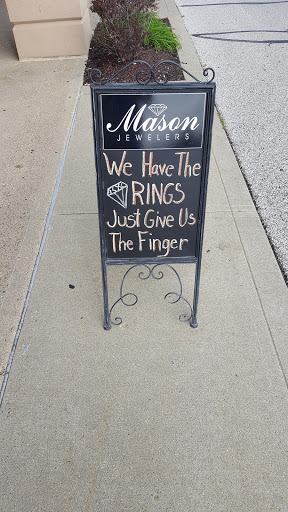 Mason
JEWELERS
WE HAVE THE
RINGS
JUST GIVE US
THE FINGER